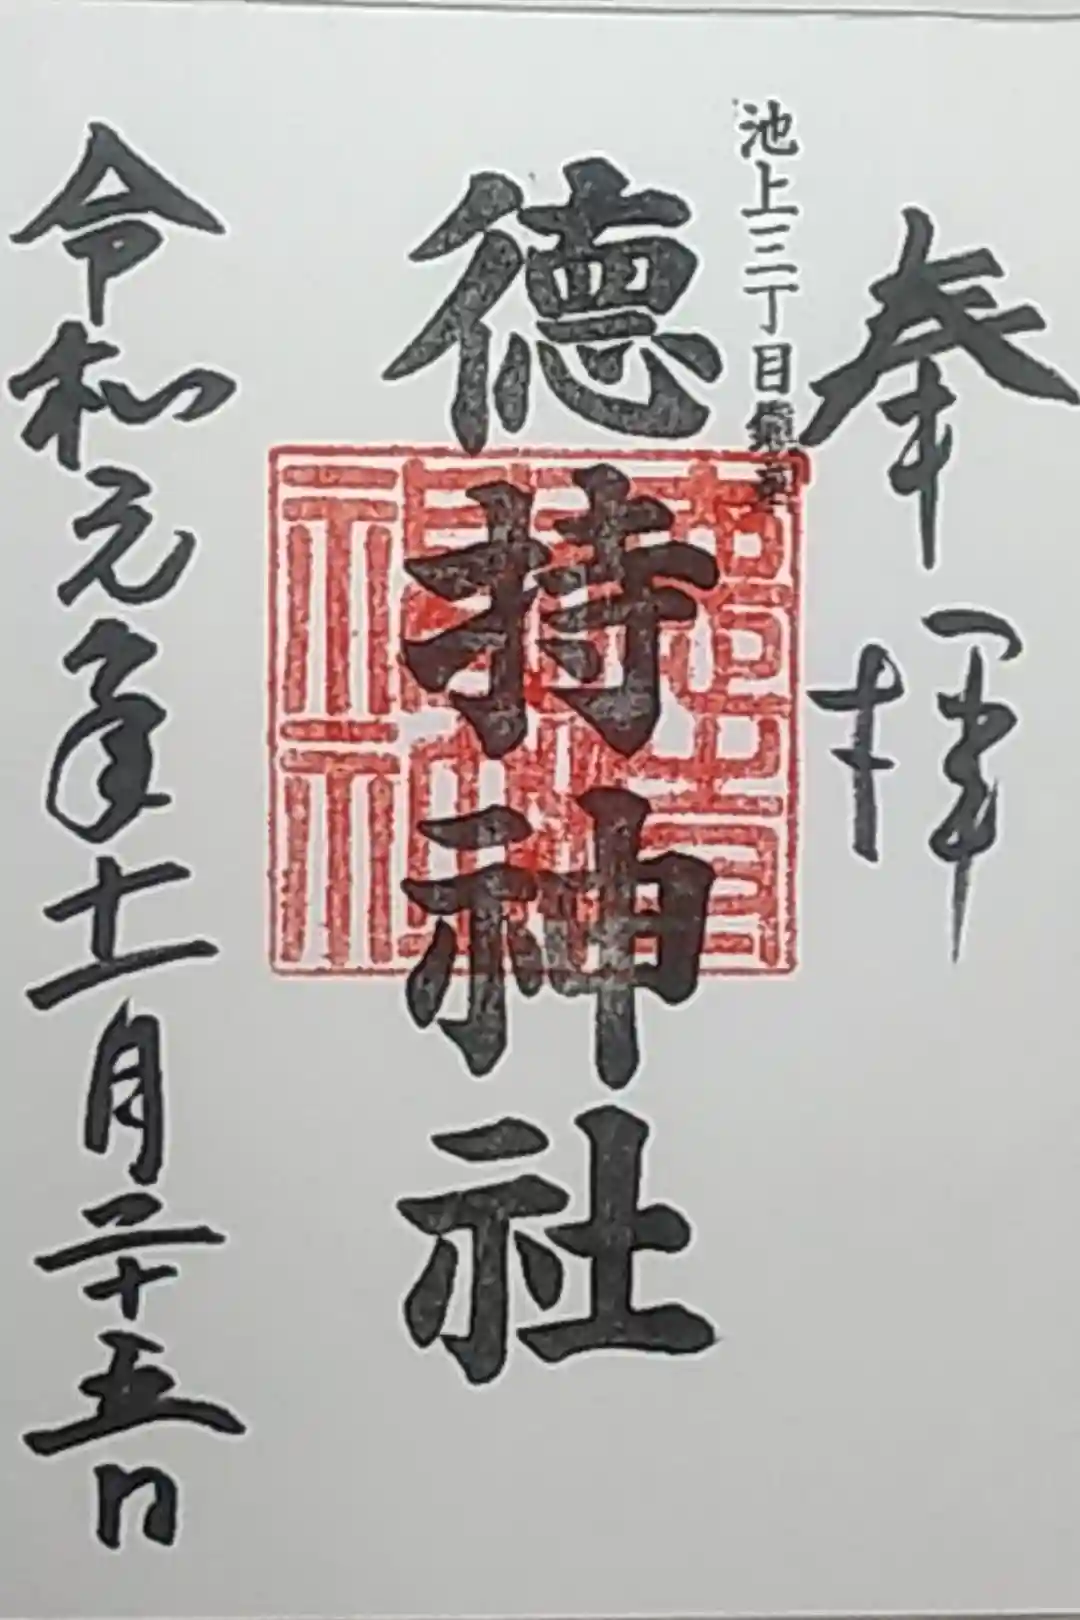 奉拝
池上三丁目鎮
徳持神社
令和元年十一月二十五日